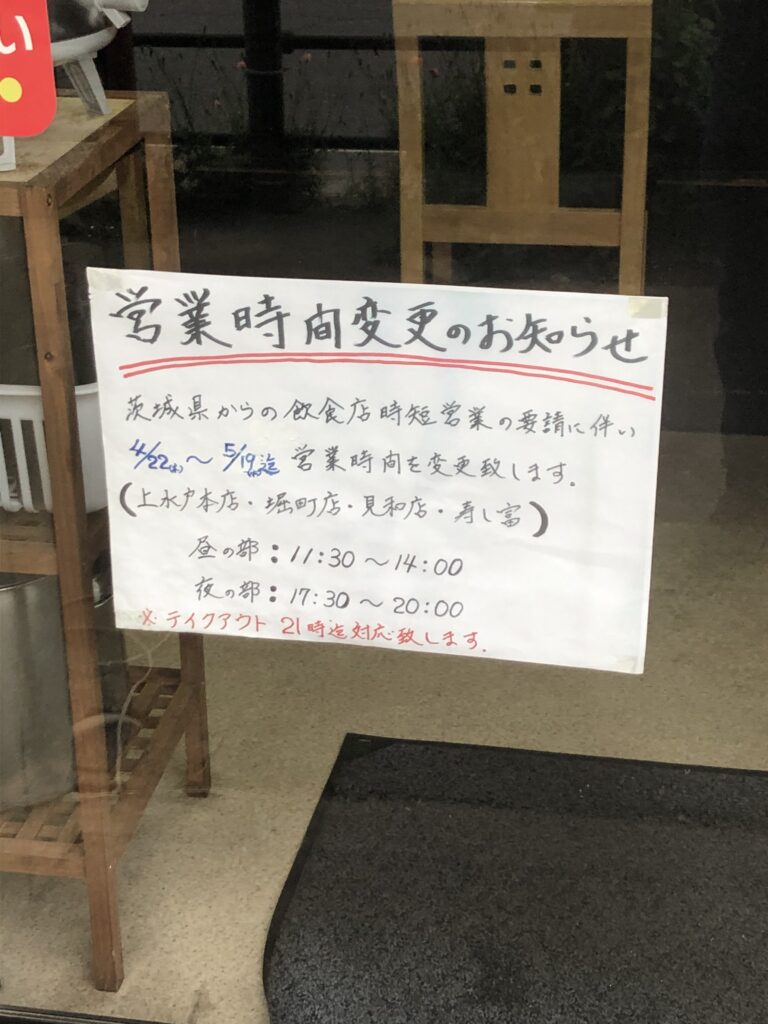 い
営業時間変更のお知らせ
茨城県からの飲食店時短営業の要請に伴い
4/22(木)～5/19(水)迄 営業時間を変更致します.
(上水戸本店・堀町店・見和店・寿し富)
昼の部：11:30～14:00
夜の部：17:30～20:00
※テイクアウト 21時迄対応致します.